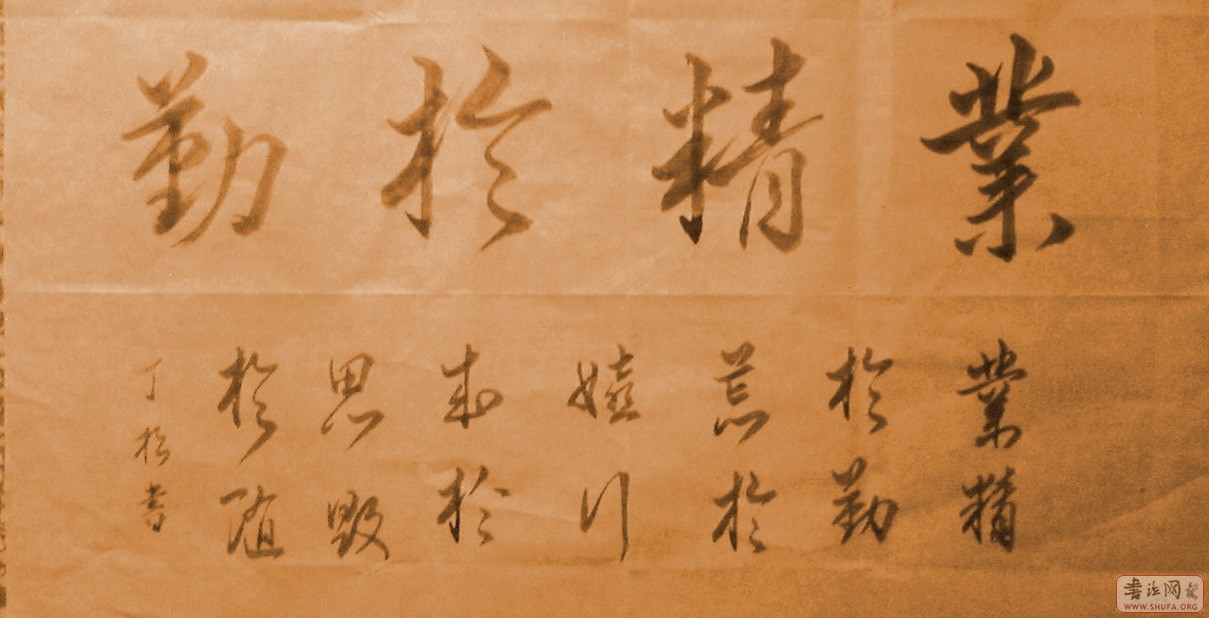 業精於勤
業精
於勤
荒於
嬉行
成於
思毀
於随
丁松書
書法网
WWW.SHUFA.ORG